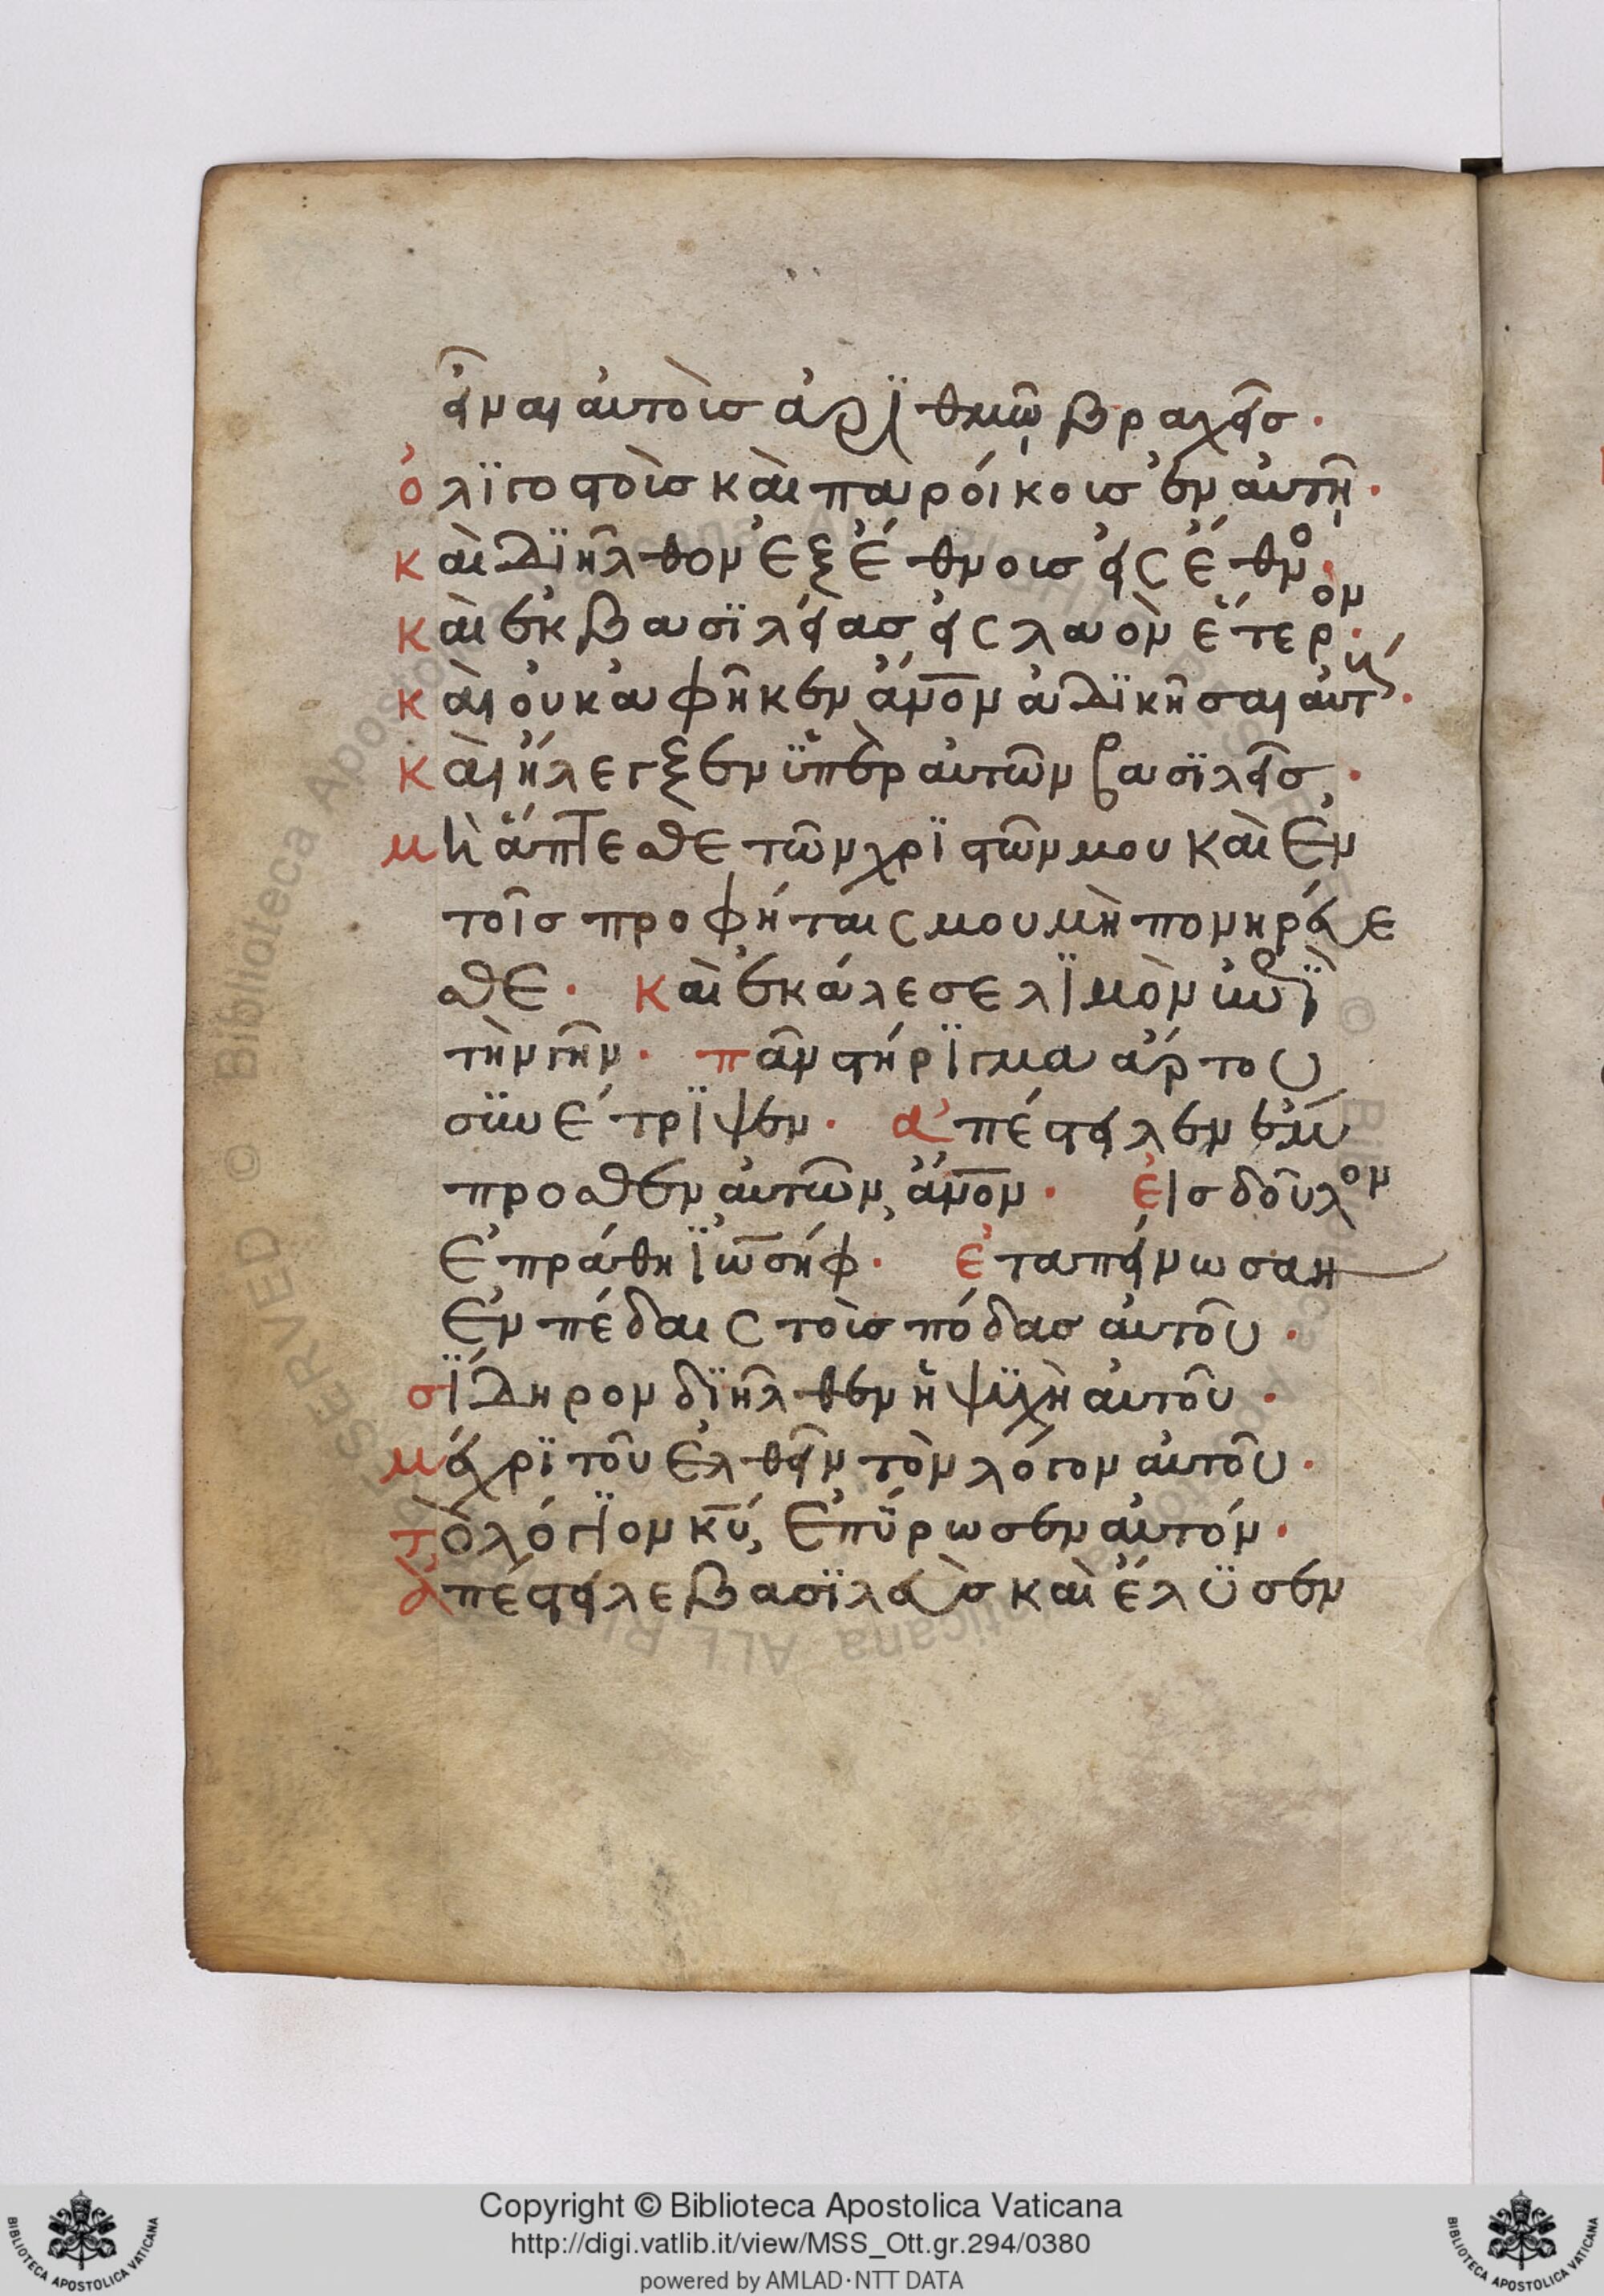 εἶναι αὐτοὺς ἀρϊθμῷ βραχεῖς·
ὀλϊγοστοὺς καὶ παροίκους ἐν αὐτῇ·
καὶ διῆλθον ἐξ ἔθνους εἰς ἔθνο·
καὶ ἐκ βασϊλείας εἰς λαὸν ἕτερον·
καὶ οὐκ ἀφῆκεν ἄνον ἀδϊκῆσαι αὐτούς·
καὶ ἤλεγξεν ὑπὲρ αὐτῶν βασϊλεῖς·
μὴ ἅπτεσθε τῶν χρϊστῶν μου καὶ ἐν
τοῖς προφήταις μου μὴ πονηρεύε
σθε· καὶ ἐκάλεσε λϊμὸν ἐπὶ
τὴν γῆν· πᾶν στήρϊγμα ἄρτου
συνέτρϊψεν· ἀπέστειλεν ἔμ
προσθεν αὐτῶν ἄνον· εἰς δοῦλον
ἐπράθη ϊωσήφ· ἐταπείνωσαν
ἐν πέδαις τοὺς πόδας αὐτοῦ·
σίδηρον δϊῆλθεν ἡ ψϋχὴ αὐτοῦ·
μέχρϊ τοῦ ἐλθεῖν τὸν λόγον αὐτοῦ·
τὸ λόγϊον κυ ἐπύρωσεν αὐτόν·
ἀπέστειλε βασϊλεὺς καὶ ἔλϋσεν
Copyright © Biblioteca Apostolica Vaticana
http://digi.vatlib.it/view/MSS_Ott.gr.294/0380
powered by AMLAD·NTT DATA
BIBLIOTECA APOSTOLICA VATICANA
BIBLIOTECA APOSTOLICA VATICANA